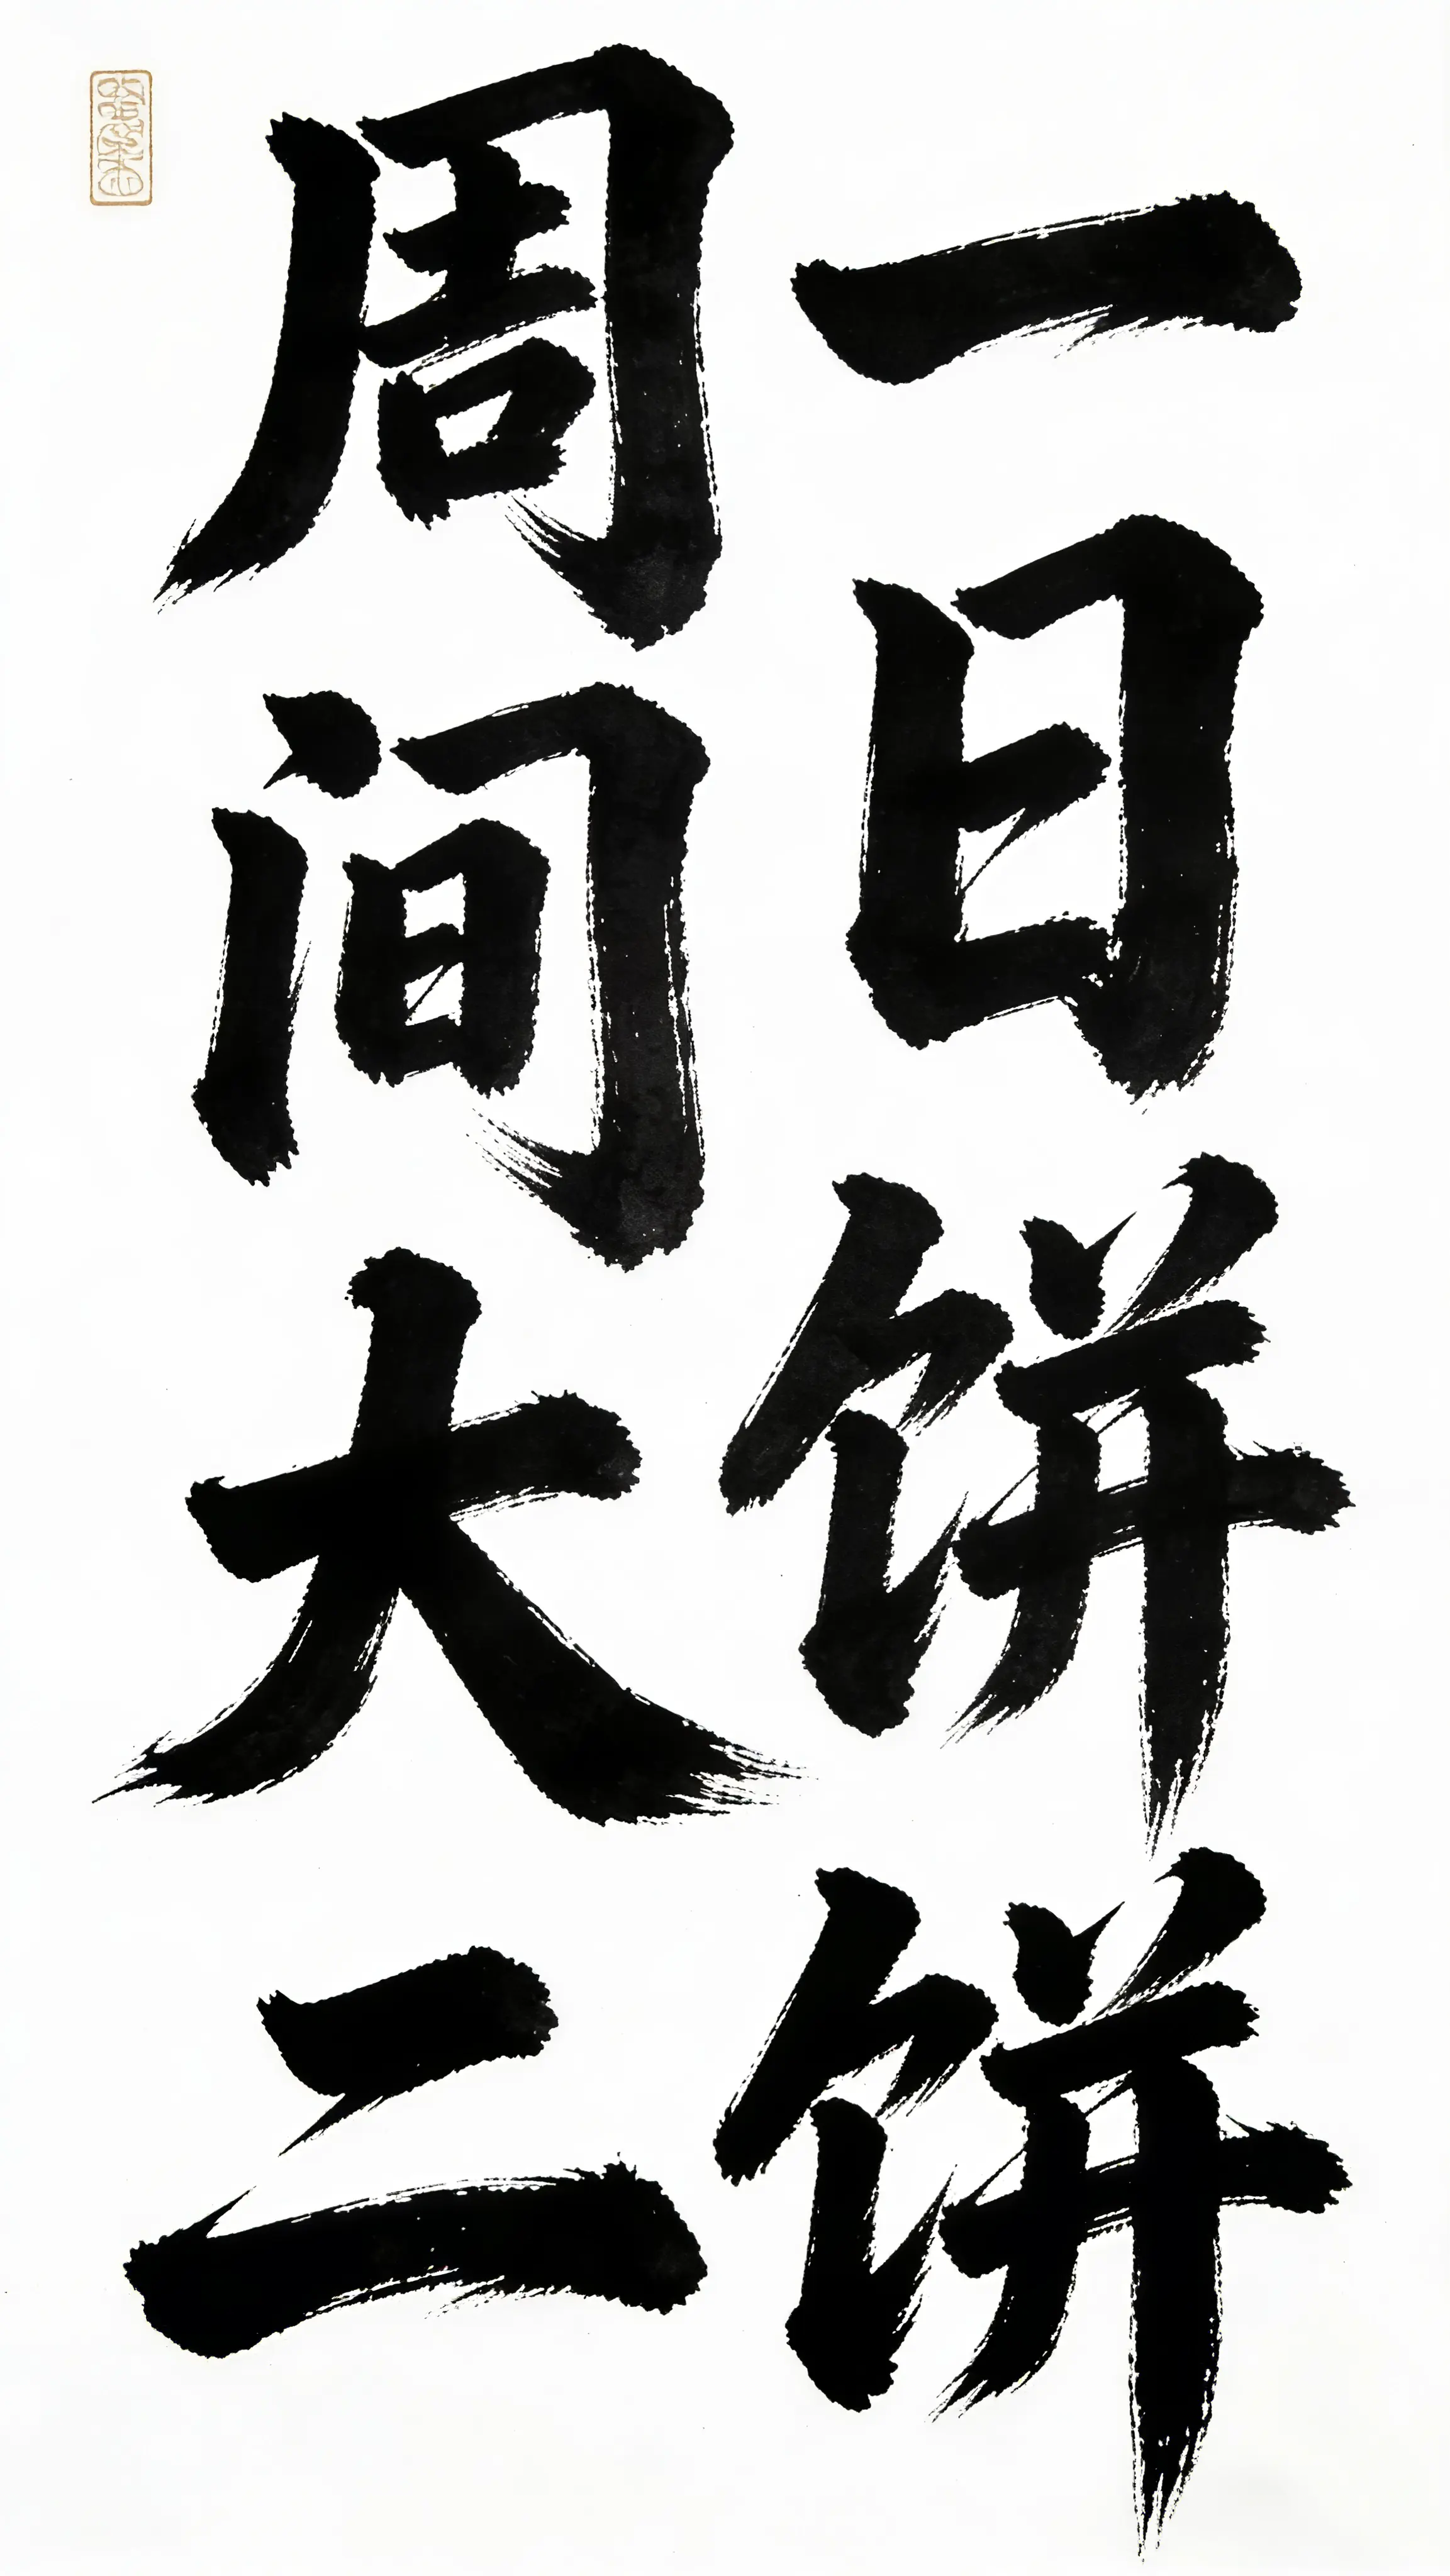 一日饼饼
周间大二